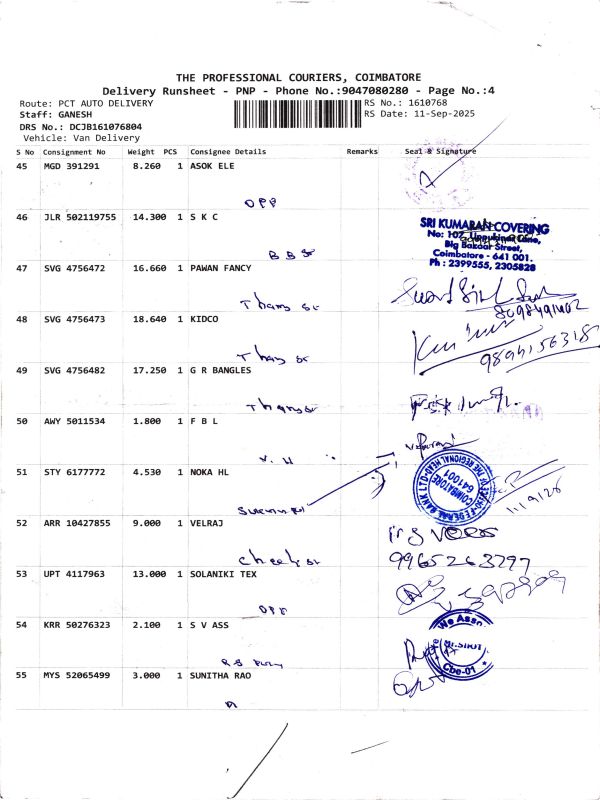 THE PROFESSIONAL COURIERS, COIMBATORE
Delivery Runsheet - PNP - Phone No.:9047080280 - Page No.:4
Route: PCT AUTO DELIVERY RS No.: 1610768
Staff: GANESH RS Date: 11-Sep-2025
DRS No.: DCJB161076804
Vehicle: Van Delivery
S No Consignment No Weight PCS Consignee Details Remarks Seal & Signature
45 MGD 391291 8.260 1 ASOK ELE
OPP
46 JLR 502119755 14.300 1 S K C
SRI KUMARAN COVERING
No: 107, Lane,
Big Bazaar Street,
Coimbatore - 641 001.
Ph : 2399555, 2305828
B B St
47 SVG 4756472 16.660 1 PAWAN FANCY
8098491402
48 SVG 4756473 18.640 1 KIDCO
49 SVG 4756482 17.250 1 G R BANGLES
50 AWY 5011534 1.800 1 F B L
51 STY 6177772 4.530 1 NOKA HL
FEDERAL BANK LTD
COIMBATORE
641001
52 ARR 10427855 9.000 1 VELRAJ
9965263297
53 UPT 4117963 13.000 1 SOLANIKI TEX
OPP
54 KRR 50276323 2.100 1 S V ASS
Cbe-01
55 MYS 52065499 3.000 1 SUNITHA RAO